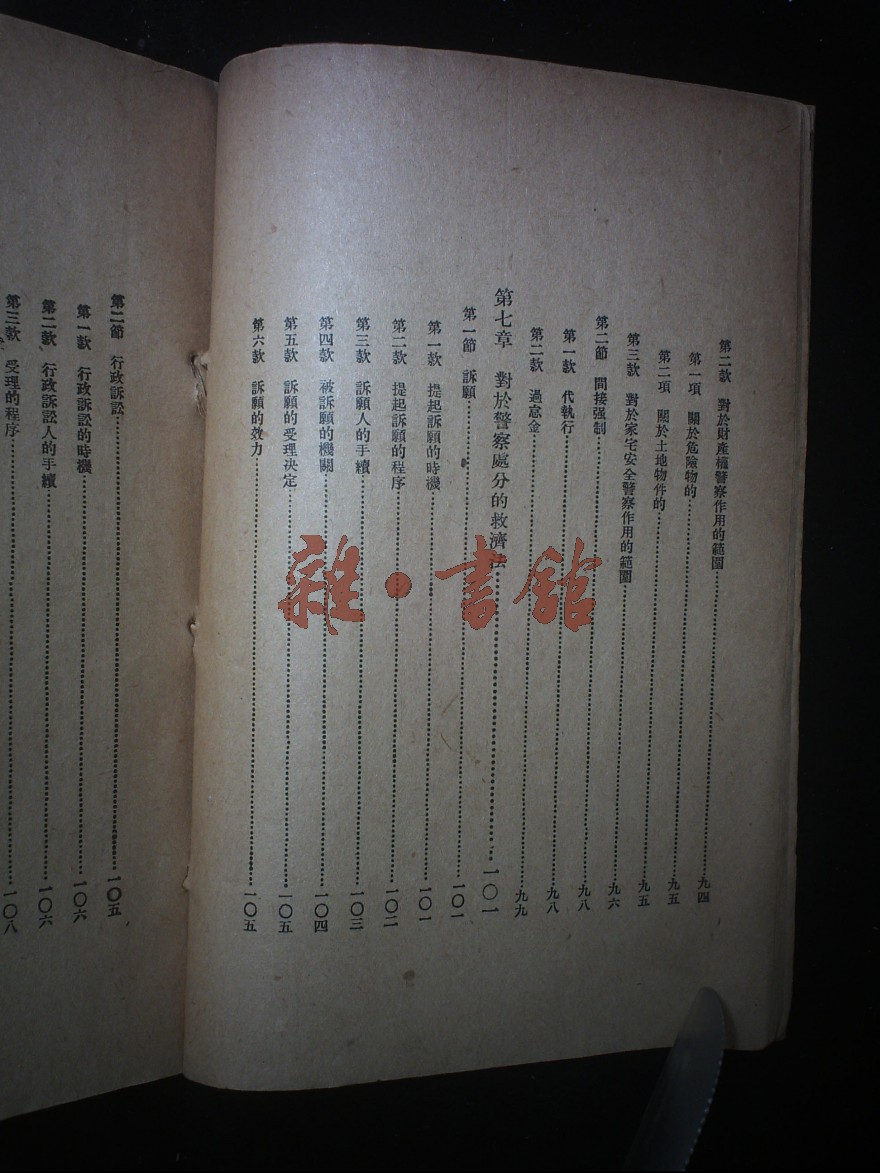 第二款 對於財產權警察作用的範圍……九四
第一項 關於危險物的……九五
第二項 關於土地物件的……九五
第三款 對於家宅安全警察作用的範圍……九六
第二節 間接强制……九八
第一款 代執行……九八
第二款 過怠金……九九
第七章 對於警察處分的救濟法……一〇一
第一節 訴願……一〇一
第一款 提起訴願的時機……一〇一
第二款 提起訴願的程序……一〇二
第三款 訴願人的手續……一〇三
第四款 被訴願的機關……一〇四
第五款 訴願的受理決定……一〇五
第六款 訴願的效力……一〇五
第二節 行政訴訟……一〇五
第一款 行政訴訟的時機……一〇六
第二款 行政訴訟人的手續……一〇六
第三款 受理的程序……一〇八
雜·書館